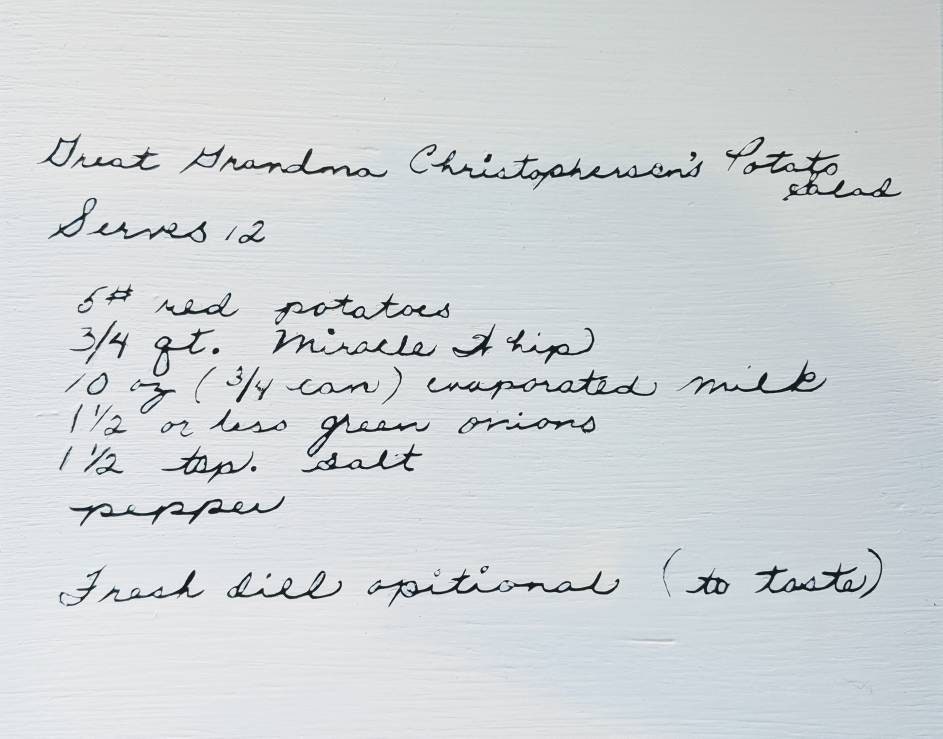 Great Grandma Christophersen's Potato
Salad
Serves 12
5# red potatoes
3/4 qt. Miracle Whip
10 oz (3/4 can) evaporated milk
1 1/2 or less green onions
1 1/2 tsp. salt
pepper
Fresh dill opitional (to taste)